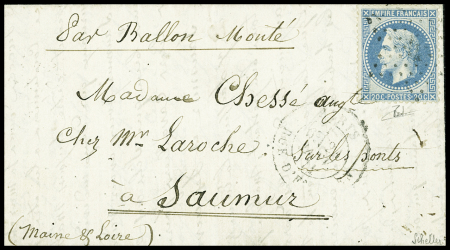 EMPIRE FRANÇAIS
Par Ballon Monté
20C POSTES 20C
Madame Chessé
Chez Mr Laroche
Sur les ponts
à Saumur
(Maine & Loire)